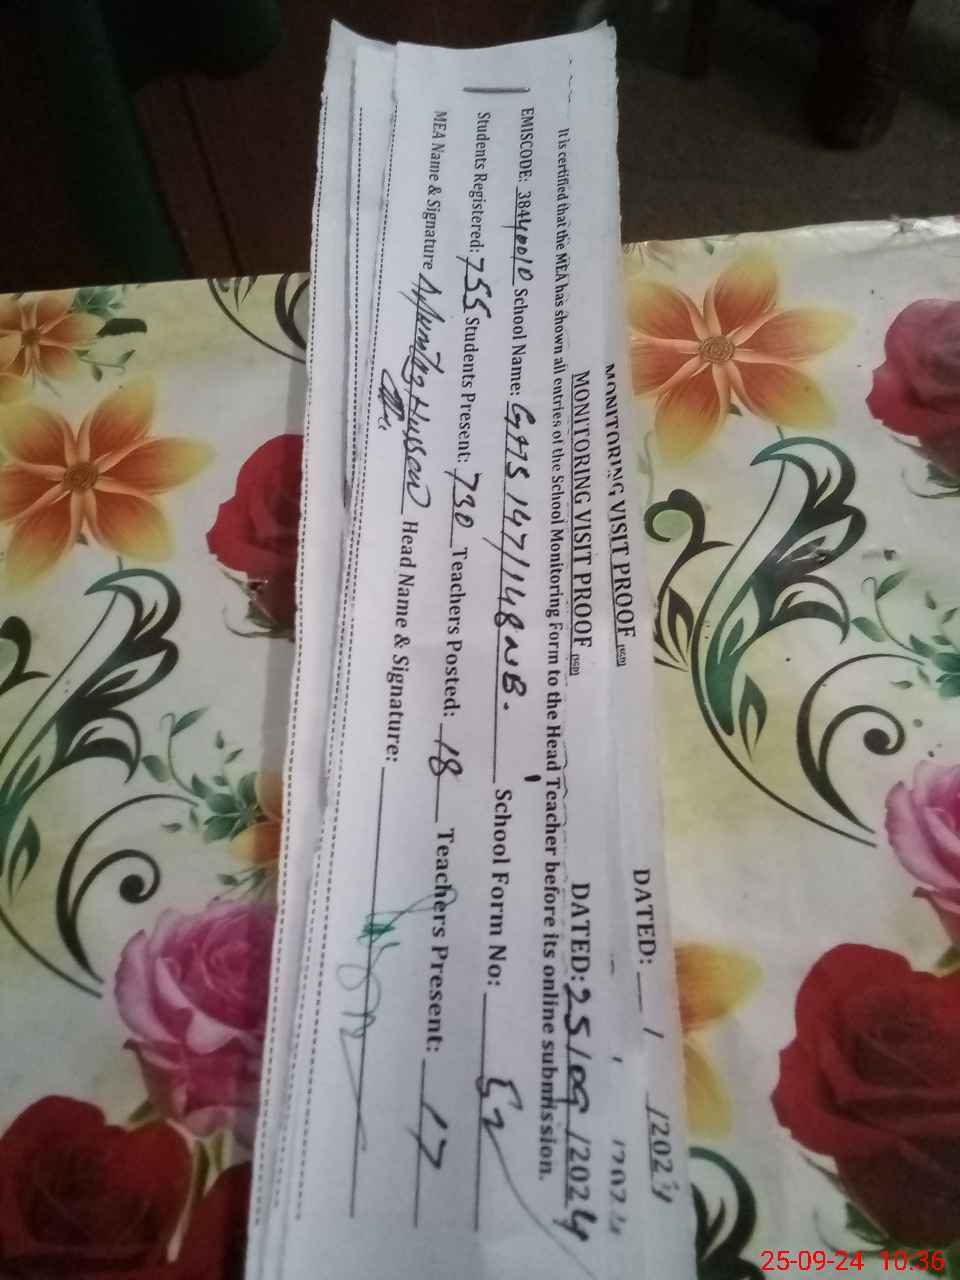 MONITORING VISIT PROOF DATED: / /2024
MONITORING VISIT PROOF DATED: 25/09/2024
It is certified that the MEA has shown all entries of the School Monitoring Form to the Head Teacher before its online submission.
EMISCODE: 38440010 School Name: GHS 147/148 NB. School Form No: 52
Students Registered: 755 Students Present: 730 Teachers Posted: 18 Teachers Present: 17
MEA Name & Signature Hussain Head Name & Signature:
25-09-24 10:36